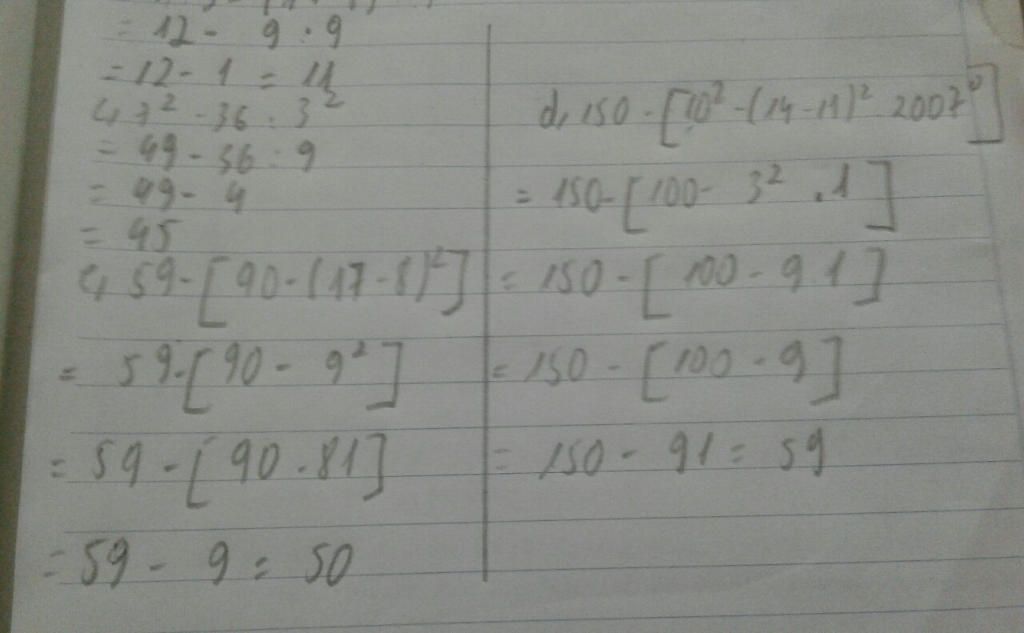 = 12 - 9 : 9
= 12 - 1 = 11
c, 7² - 36 : 3²
= 49 - 36 : 9
= 49 - 4
= 45
c, 59 - [90 - (17 - 8)²]
= 59 - [90 - 9²]
= 59 - [90 - 81]
= 59 - 9 = 50
d, 150 - [10² - (14 - 11)² 2007⁰]
= 150 - [100 - 3² . 1]
= 150 - [100 - 9 1]
= 150 - [100 - 9]
= 150 - 91 = 59